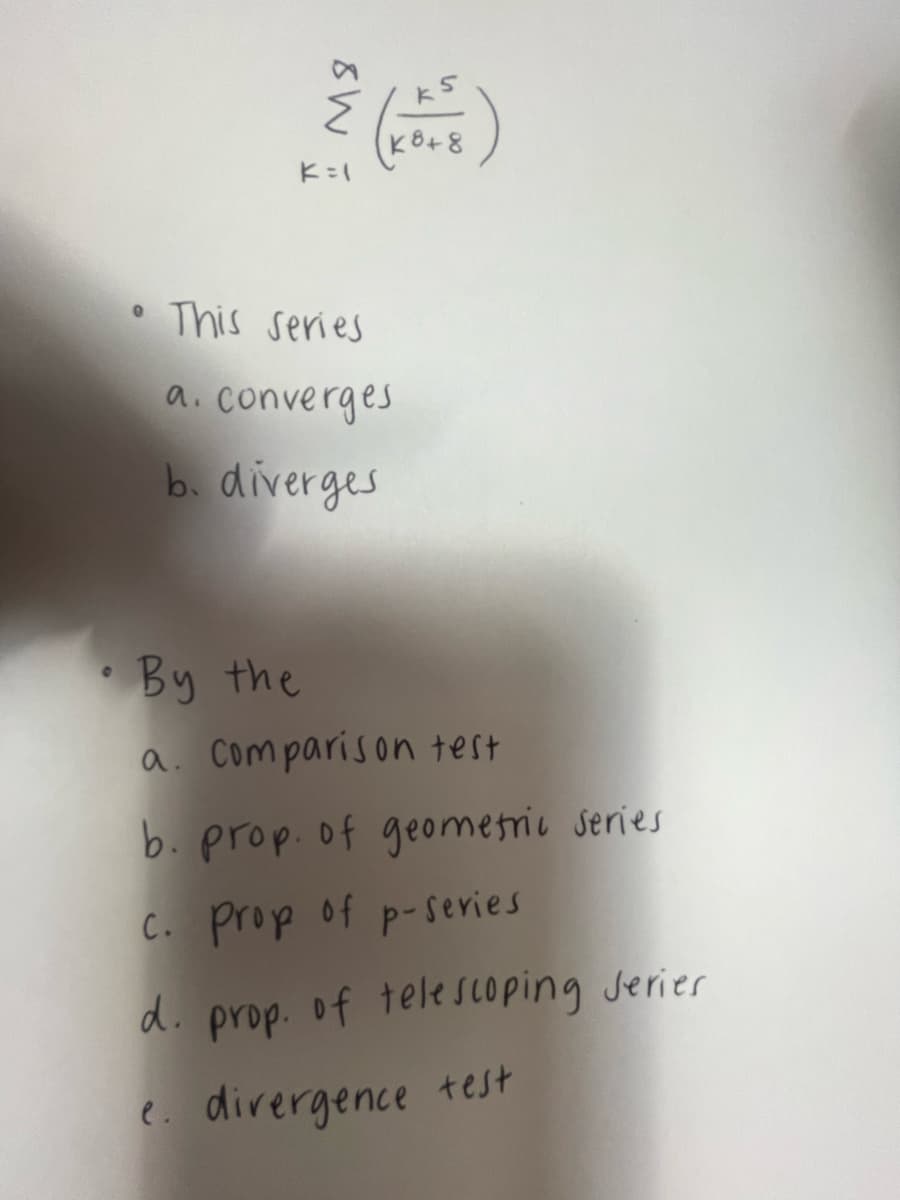 ∞
Σ ( k^5 / (k^8+8) )
k=1
• This series
a. converges
b. diverges
• By the
a. comparison test
b. prop. of geometric series
c. prop of p-series
d. prop. of telescoping series
e. divergence test